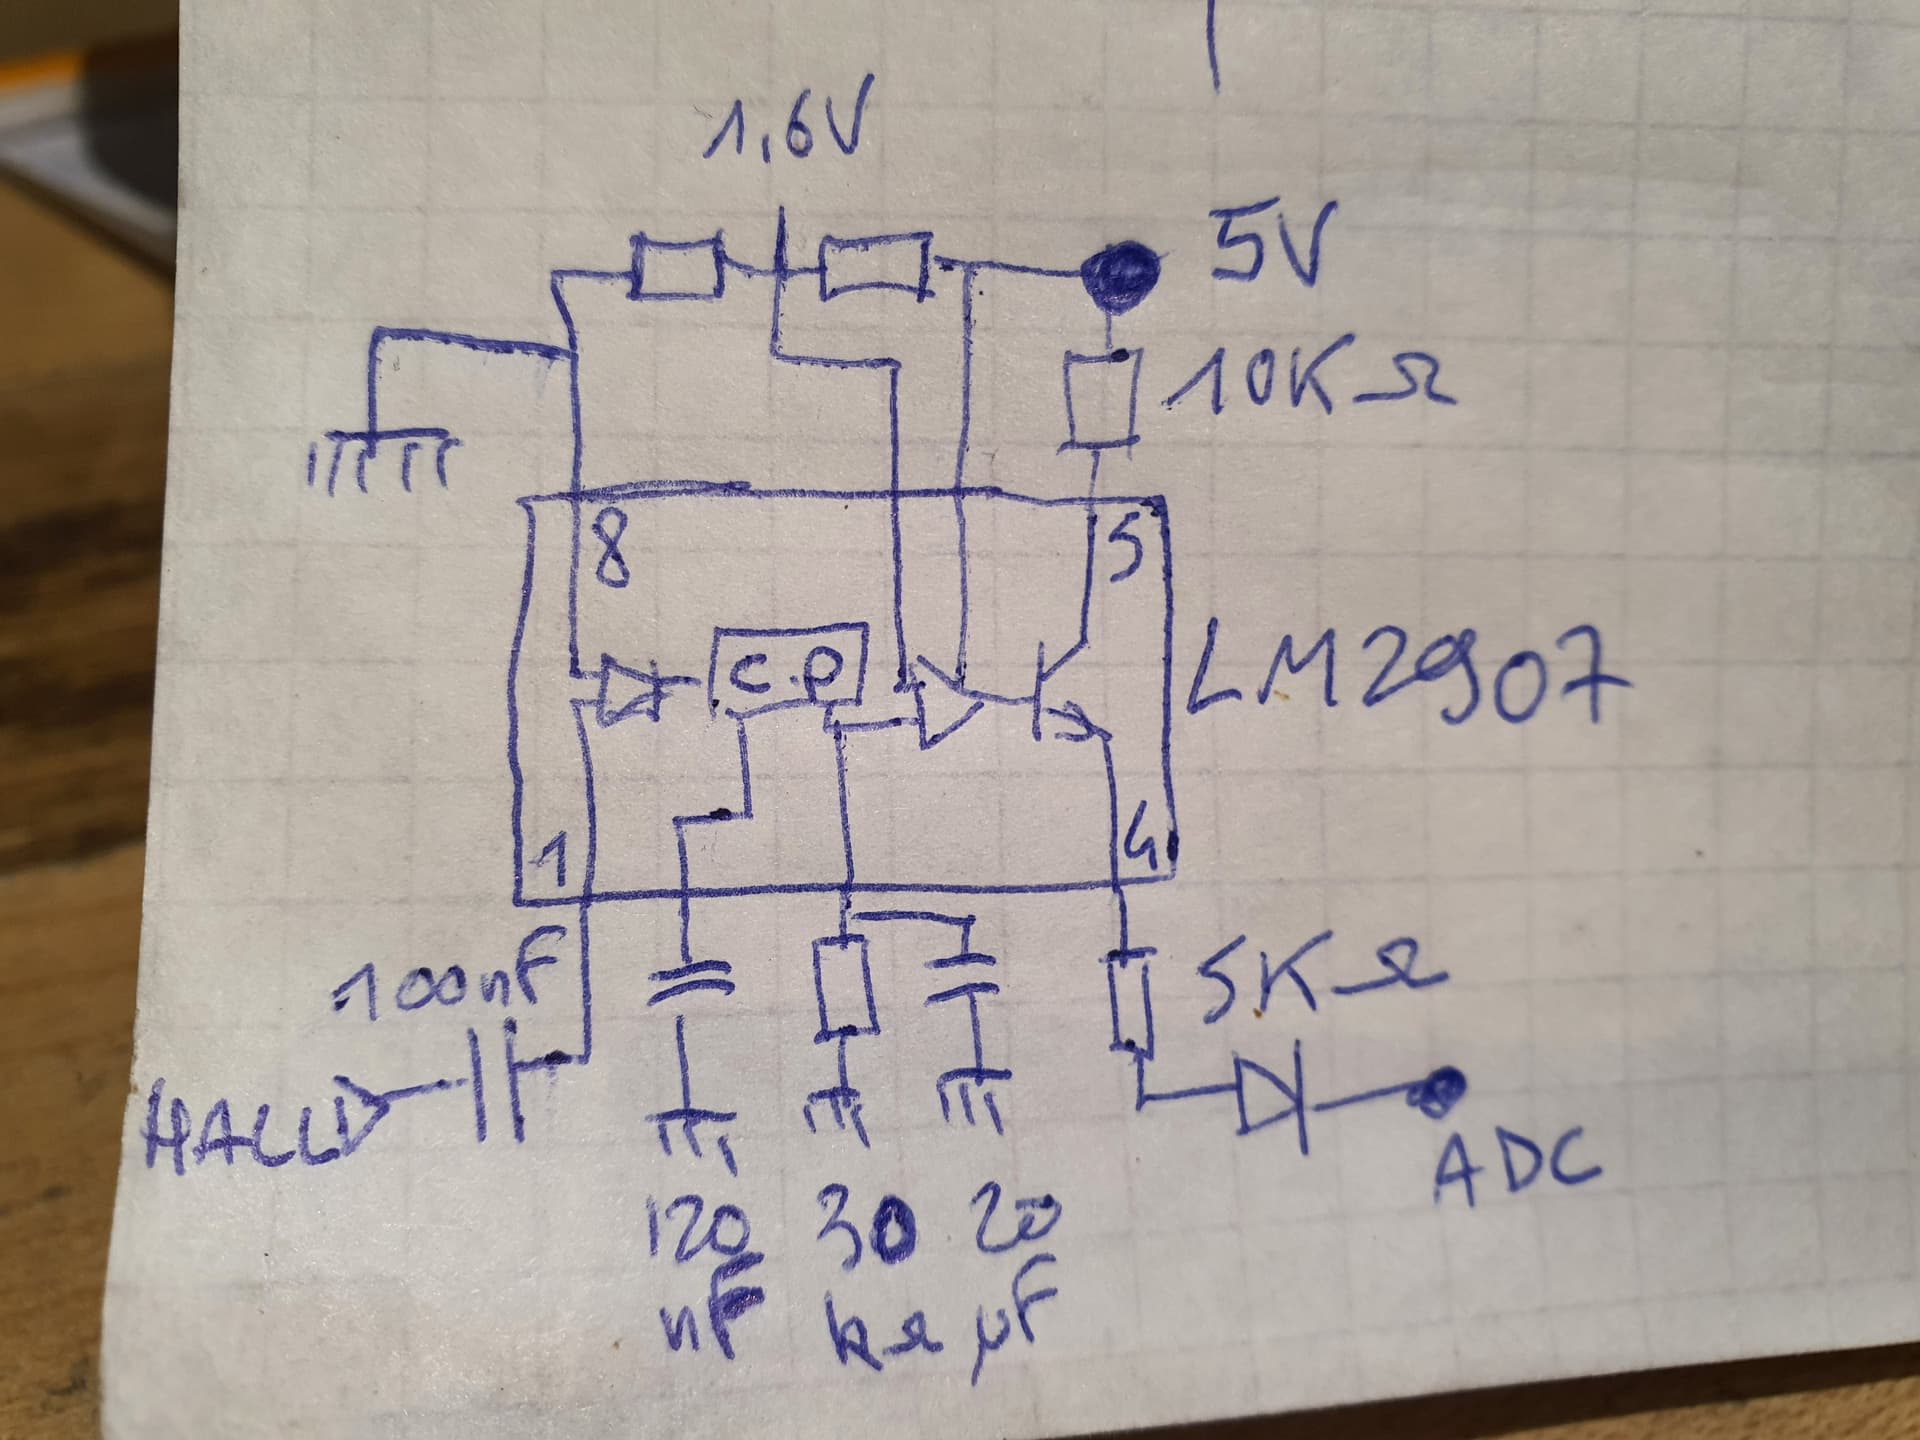 1,6V
5V
10KΩ
8
5
C.P
LM2907
1
4
100nF
5KΩ
HALL
ADC
120 30 20
nF kΩ µF